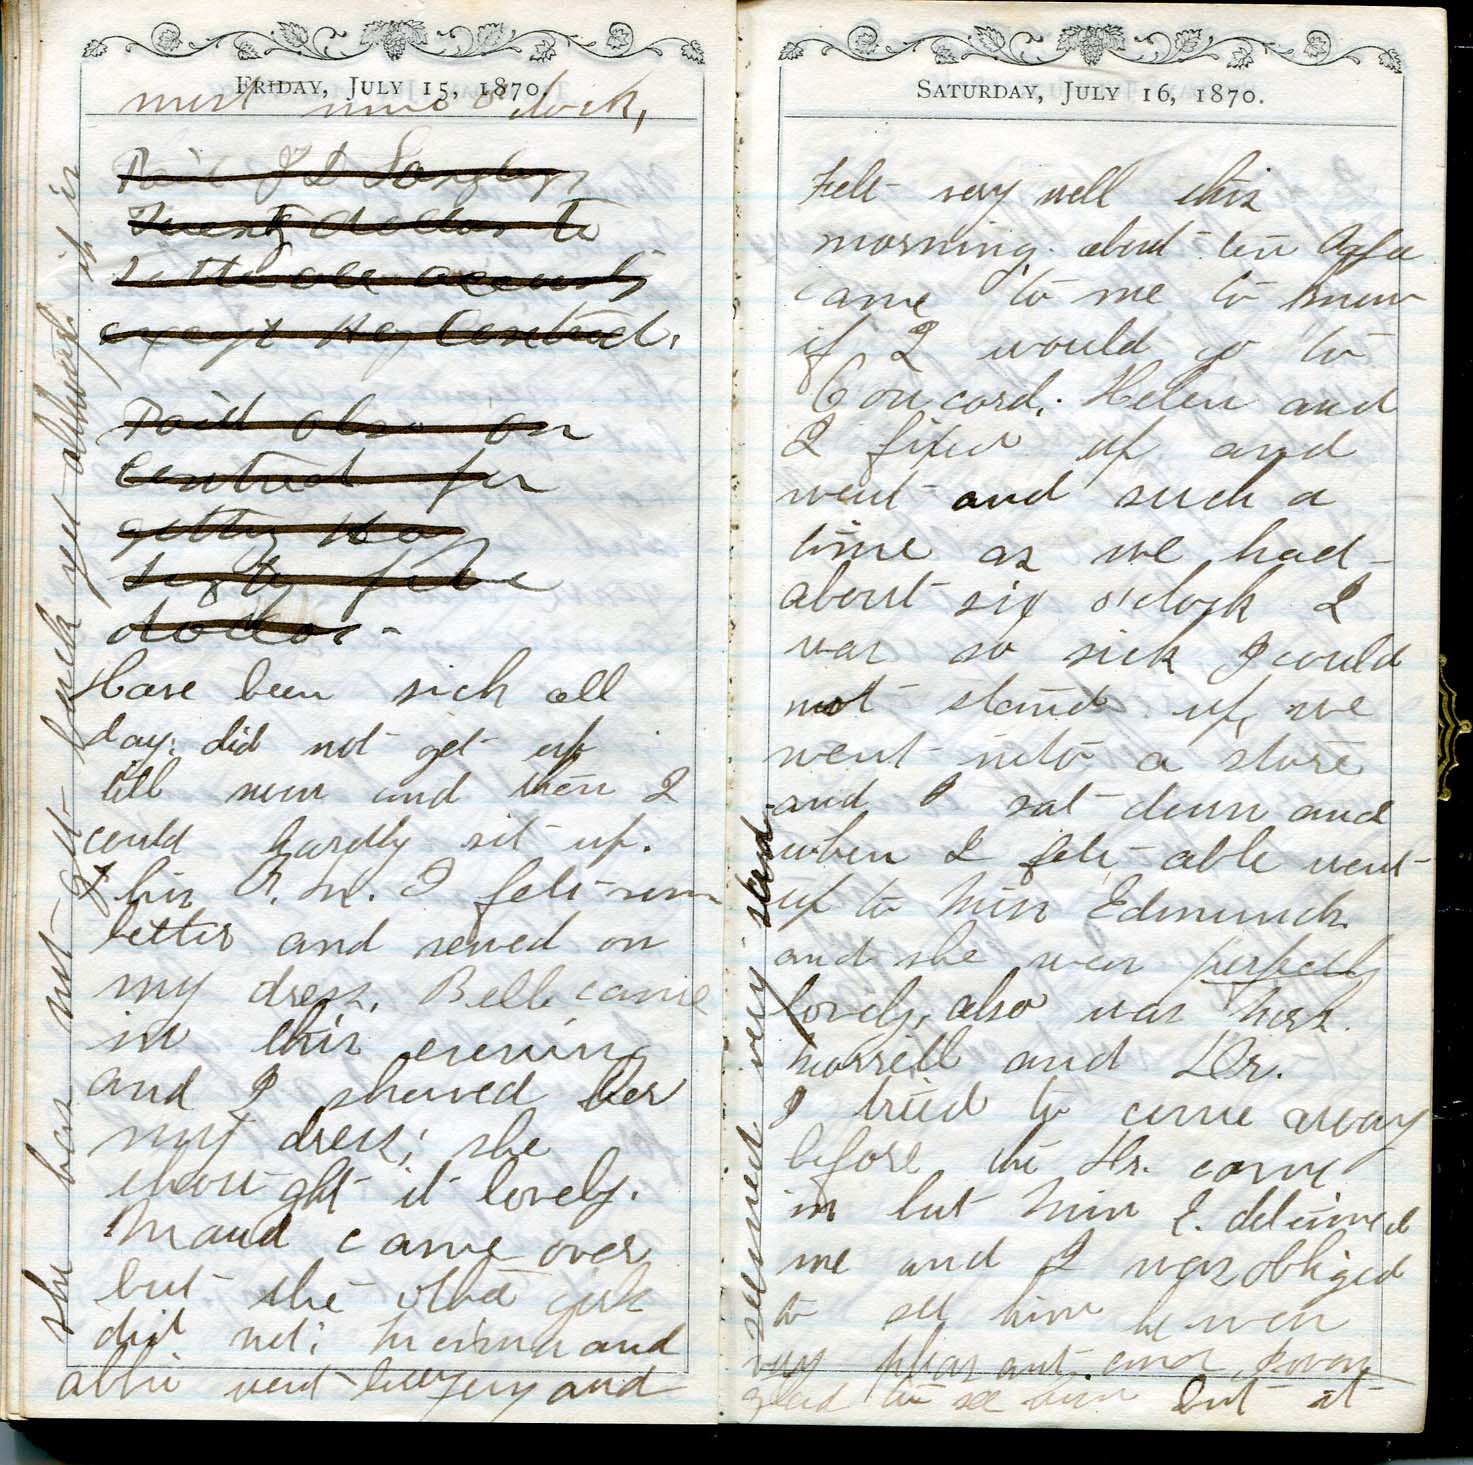 FRIDAY, JULY 15, 1870.
most nine o'clock,
Paid J D
Twenty dollars to
settle all accounts
except Hay Contract.
Paid also on
Contract for
getting Hay
Sixty five
dollar-
Have been sick all
day. did not get up
till noon and then I
could hardly sit up.
this P. M. I felt some
better and sewed on
my dress. Belle came
in this evening
and I showed her
my dress; she
thought it lovely.
Maud came over
but the other girls
did not; and
Abbie went and
she has not got back yet although it is
SATURDAY, JULY 16, 1870.
Felt very well this
morning. about ten
came to me to know
if I would go to
Concord. Helen and
I fixed up and
went and such a
time as we had
about six o'clock I
was so sick I could
not stand up, we
went into a store
and I sat down and
when I felt able went
up to Miss Edmunds
and she was perfectly
lovely, also was Mrs.
Morrill and Dr.
I tried to come away
before the Dr. came
in but Miss E. detained
me and I was obliged
to see him he was
very pleasant and I was
glad to see him but it
seemed very hard